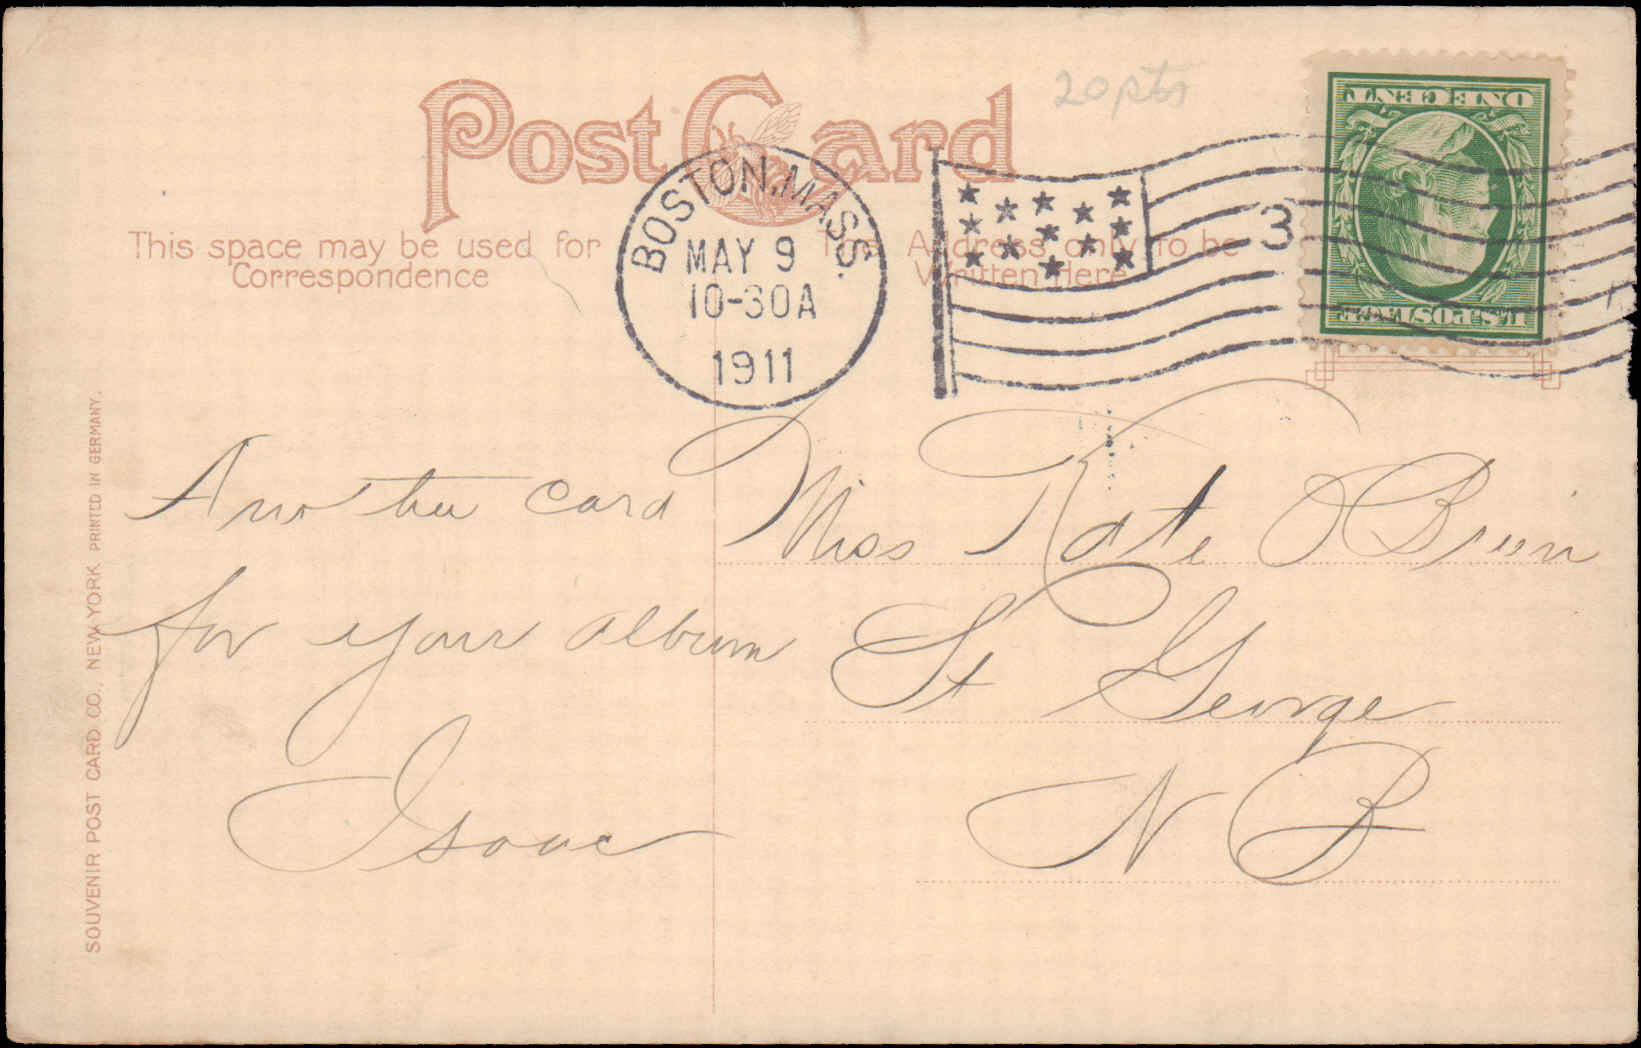 Post Card
20 pts
This space may be used for
Correspondence
This Address only to be
Written Here
BOSTON, MASS.
MAY 9
10-30A
1911
3
ONE CENT
U.S. POSTAGE
Another card
for your album
Isaac
Miss Kate
St George
N B
SOUVENIR POST CARD CO., NEW YORK PRINTED IN GERMANY.